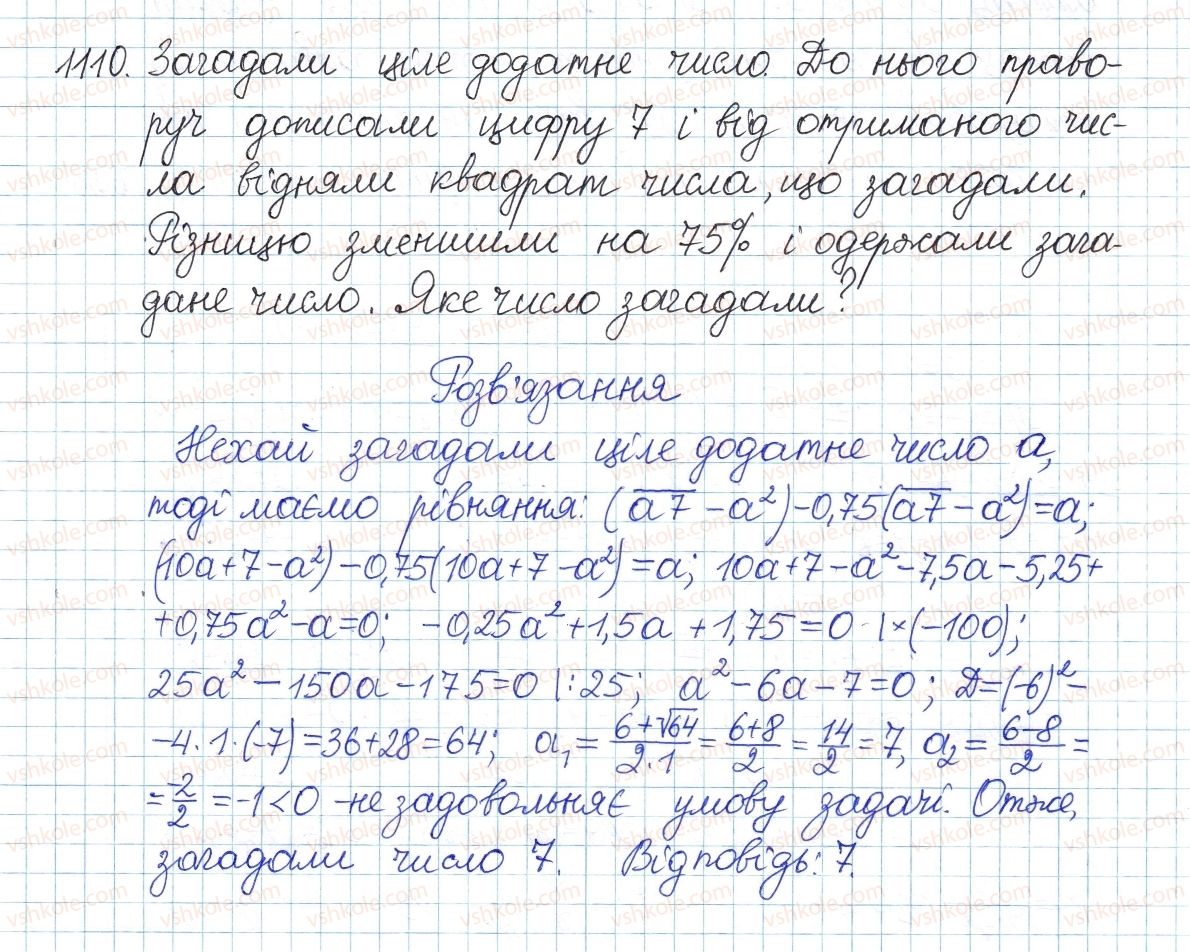 1110. Загадали ціле додатне число. До нього право-
руч дописали цифру 7 і від отриманого чис-
ла відняли квадрат числа, що загадали.
Різницю зменшили на 75% і одержали зага-
дане число. Яке число загадали?
Розв'язання
Нехай загадали ціле додатне число a,
тоді маємо рівняння: (a̅7̅ - a²) - 0,75(a̅7̅ - a²) = a;
(10a+7-a²)-0,75(10a+7-a²)=a; 10a+7-a²-7,5a-5,25+
+0,75a²-a=0; -0,25a²+1,5a+1,75=0 |×(-100);
25a²-150a-175=0 |:25; a²-6a-7=0; D=(-6)²-
-4·1·(-7)=36+28=64; a₁=(6+√64)/(2·1)=(6+8)/2=14/2=7, a₂=(6-8)/2=
=-2/2=-1<0 - не задовольняє умову задачі. Отже,
загадали число 7. Відповідь: 7.